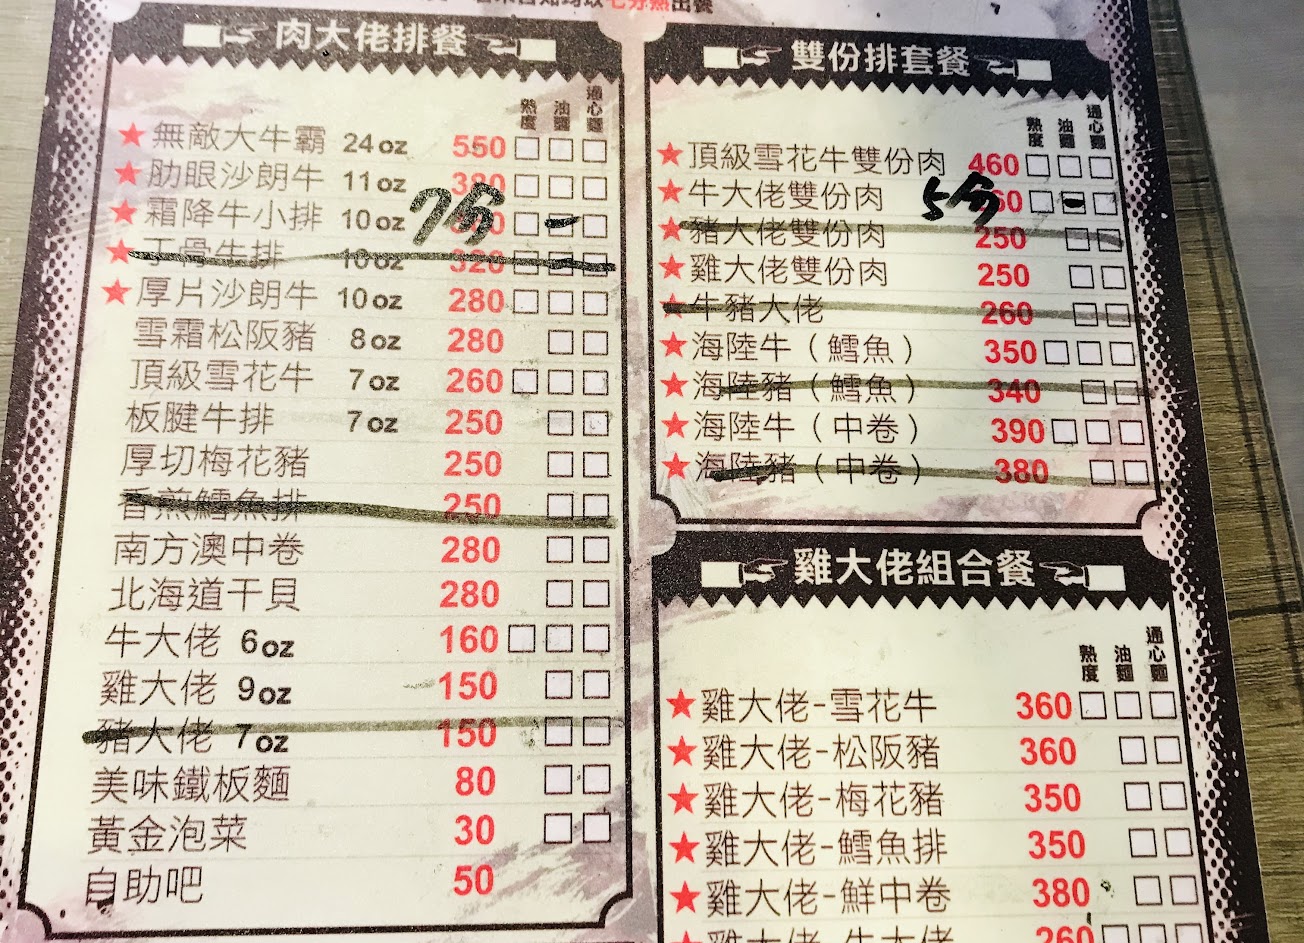 七分熟出餐
肉大佬排餐
熟度 油麵 通心麵
★無敵大牛霸 24oz 550
★肋眼沙朗牛 11oz 380
★霜降牛小排 10oz 7分
★丁骨牛排 10oz 320
★厚片沙朗牛 10oz 280
雪霜松阪豬 8oz 280
頂級雪花牛 7oz 260
板腱牛排 7oz 250
厚切梅花豬 250
香煎鱈魚排 250
南方澳中卷 280
北海道干貝 280
牛大佬 6oz 160
雞大佬 9oz 150
豬大佬 7oz 150
美味鐵板麵 80
黃金泡菜 30
自助吧 50
雙份排套餐
熟度 油麵 通心麵
★頂級雪花牛雙份肉 460
★牛大佬雙份肉 5分
★豬大佬雙份肉 250
★雞大佬雙份肉 250
★牛豬大佬 260
★海陸牛(鱈魚) 350
★海陸豬(鱈魚) 340
★海陸牛(中卷) 390
★海陸豬(中卷) 380
雞大佬組合餐
熟度 油麵 通心麵
★雞大佬-雪花牛 360
★雞大佬-松阪豬 360
★雞大佬-梅花豬 350
★雞大佬-鱈魚排 350
★雞大佬-鮮中卷 380
★雞大佬-牛大佬 260